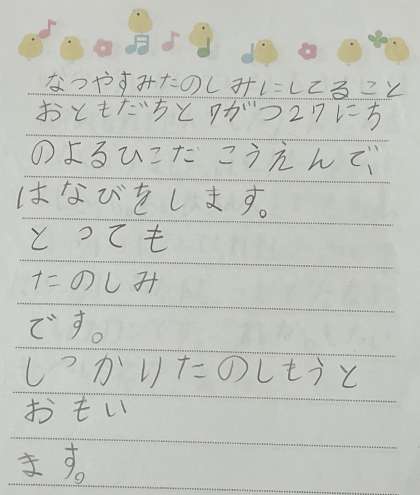 なつやすみたのしみにしてること
おともだちと7がつ27にち
のよるひこだ こうえんで、
はなびをします。
とっても
たのしみ
です。
しっかりたのしもうと
おもい
ます。